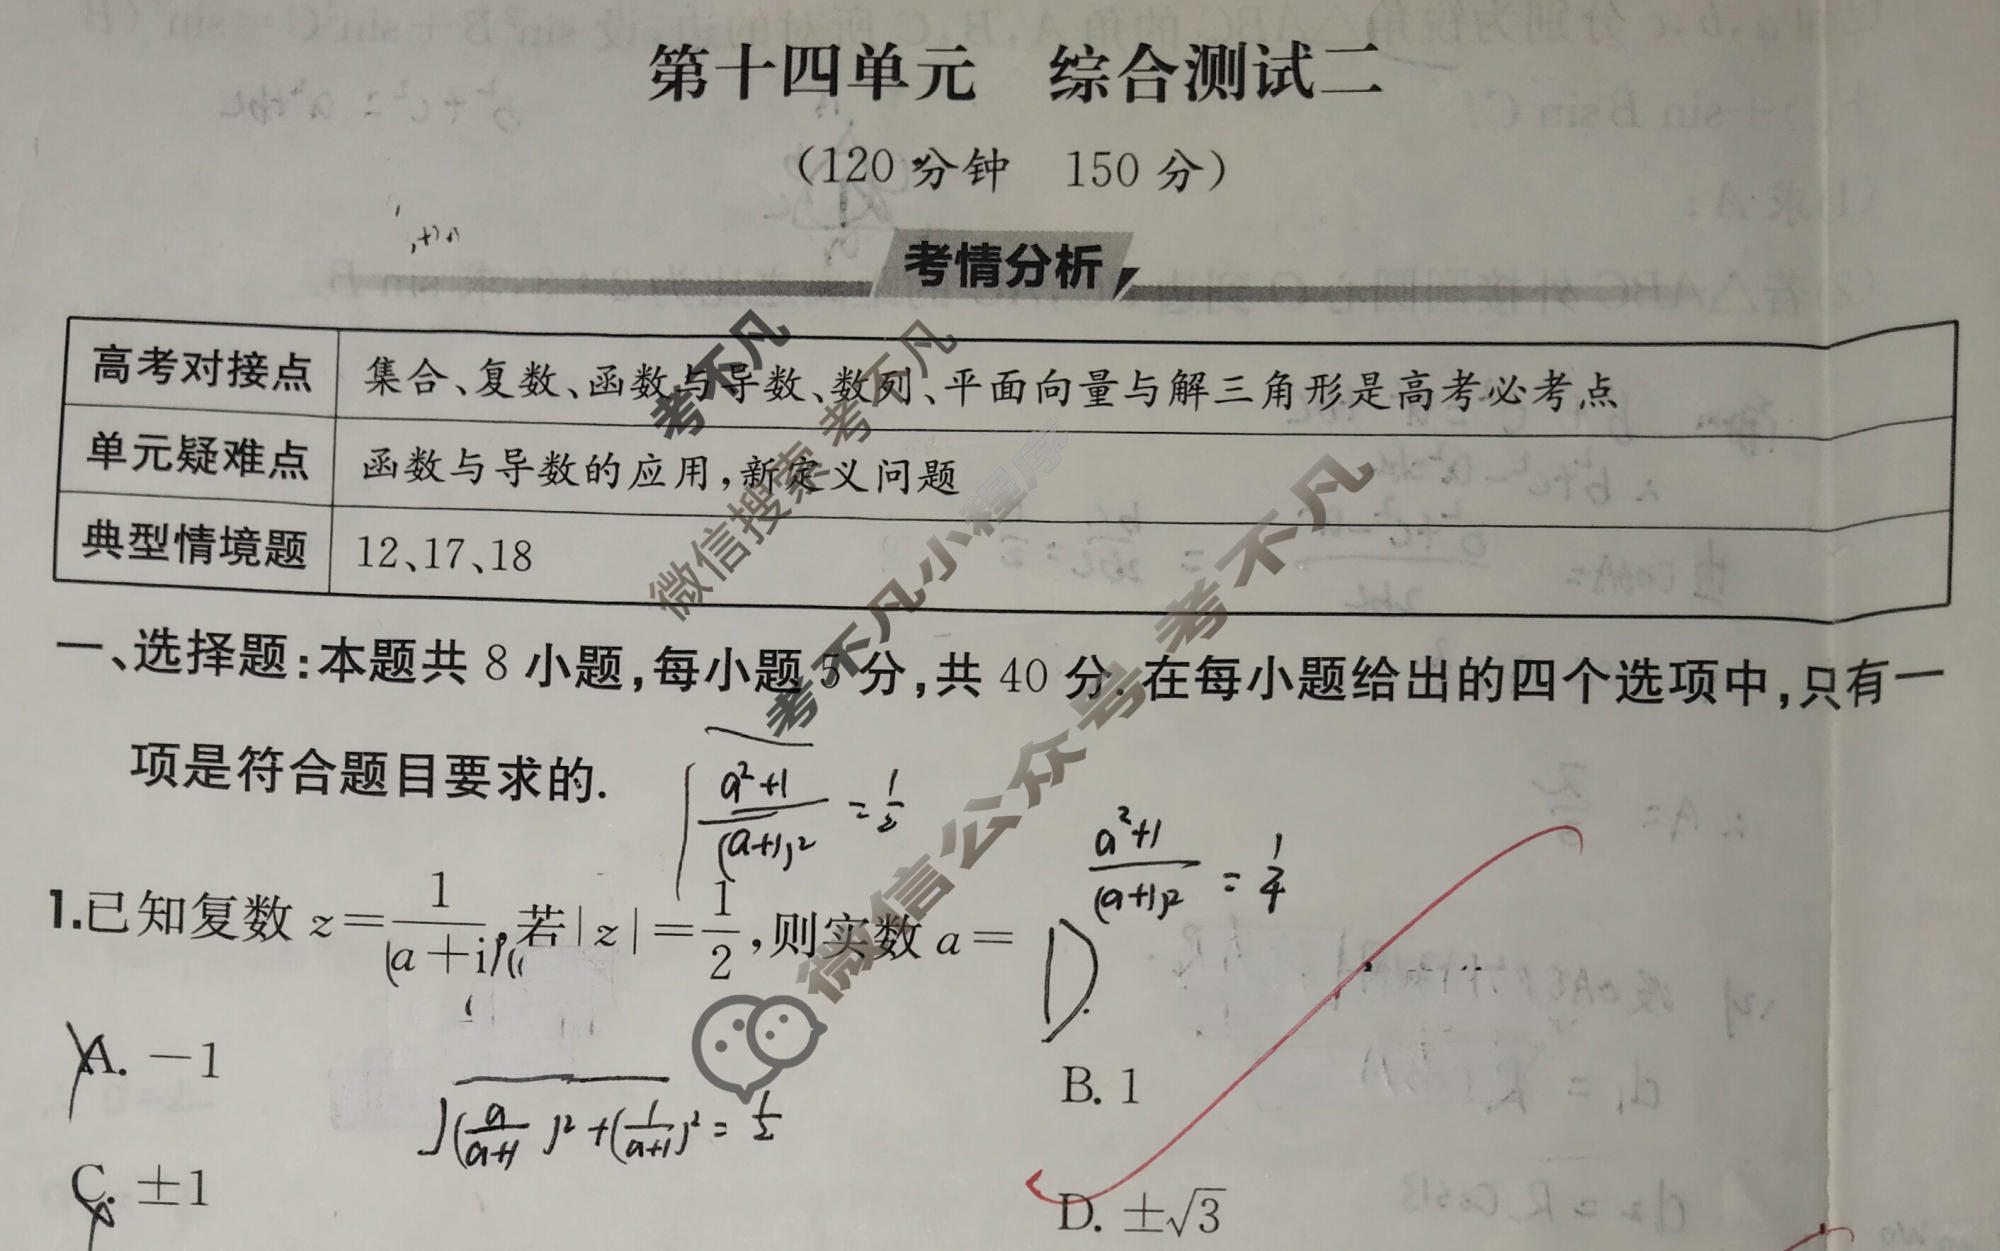 第十四单元 综合测试二
(120分钟 150分)
考情分析
高考对接点 集合、复数、函数与导数、数列、平面向量与解三角形是高考必考点
单元疑难点 函数与导数的应用,新定义问题
典型情境题 12、17、18
一、选择题:本题共8小题,每小题5分,共40分.在每小题给出的四个选项中,只有一
项是符合题目要求的.
a²+1/(a+1)² = 1/2
a²+1/(a+1)² = 1/4
1.已知复数z=1/(a+i),若|z|=1/2,则实数a=
D.
A. -1
B. 1
√(a/(a+1))²+(1/(a+1))² = 1/2
C. ±1
D. ±√3
考不凡
微信搜索 考不凡
考不凡小程序
微信公众号 考不凡